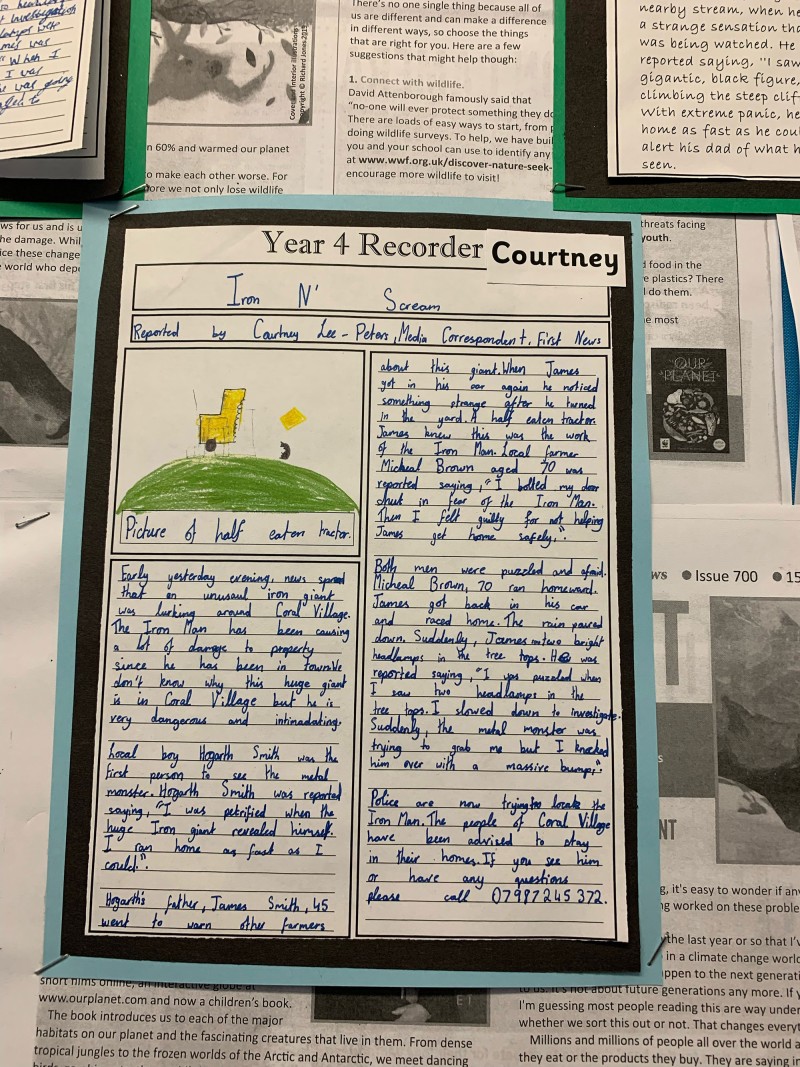 Year 4 Recorder Courtney
Iron N' Scream
Reported by Courtney Lee - Peters, Media Correspondent, First News
Picture of half eaten tractor.
Early yesterday evening, news spread
that an unusaul iron giant
was lurking around Coral Village.
The Iron Man has been causing
a lot of damage to property
since he has been in town. We
don't know why this huge giant
is in Coral Village but he is
very dangerous and intimadating.
Local boy Hogarth Smith was the
first person to see the metal
monster. Hogarth Smith was reported
saying, "I was petrified when the
huge Iron giant revealed himself.
I ran home as fast as I
could".
Hogarth's father, James Smith, 45
went to warn other farmers
about this giant. When James
got in his car again he noticed
something strange after he turned
in the yard. A half eaten tractor.
James knew this was the work
of the Iron Man. Local farmer
Micheal Brown aged 70 was
reported saying, "I bolted my door
shut in fear of the Iron Man.
Then I felt guilty for not helping
James get home safely,".
Both men were puzzled and afraid.
Micheal Brown, 70 ran homeward.
James got back in his car
and raced home. The rain poured
down. Suddenly, James two bright
headlamps in the tree tops. He was
reported saying, "I was puzzled when
I saw two headlamps in the
tree tops. I slowed down to investigate.
Suddenly, the metal monster was
trying to grab me but I knocked
him over with a massive bump,".
Police are now trying to locate the
Iron Man. The people of Coral Village
have been advised to stay
in their homes. If you see him
or have any questions
please call 07987245372.
There's no one single thing because all of
us are different and can make a difference
in different ways, so choose the things
that are right for you. Here are a few
suggestions that might help though:
1. Connect with wildlife.
David Attenborough famously said that
"no-one will ever protect something they do
There are loads of easy ways to start, from
doing wildlife surveys. To help, we have buil
you and your school can use to identify any
at www.wwf.org.uk/discover-nature-seek-
encourage more wildlife to visit!
n 60% and warmed our planet
to make each other worse. For
ore we not only lose wildlife
nearby stream, when he
a strange sensation tha
was being watched. He
reported saying, "I saw
gigantic, black figure,
climbing the steep clif
With extreme panic, he
home as fast as he coul
alert his dad of what h
seen.
threats facing
youth.
food in the
plastics? There
I do them.
e most
OUR
PLANET
Issue 700
www.ourplanet.com and now a children's book.
The book introduces us to each of the major
habitats on our planet and the fascinating creatures that live in them. From dense
tropical jungles to the frozen worlds of the Arctic and Antarctic, we meet dancing
g, it's easy to wonder if any
ng worked on these proble
the last year or so that I'v
in a climate change world
ppen to the next generati
about future generations any more. If y
I'm guessing most people reading this are way under
whether we sort this out or not. That changes everyt
Millions and millions of people all over the world a
they eat or the products they buy. They are saying in